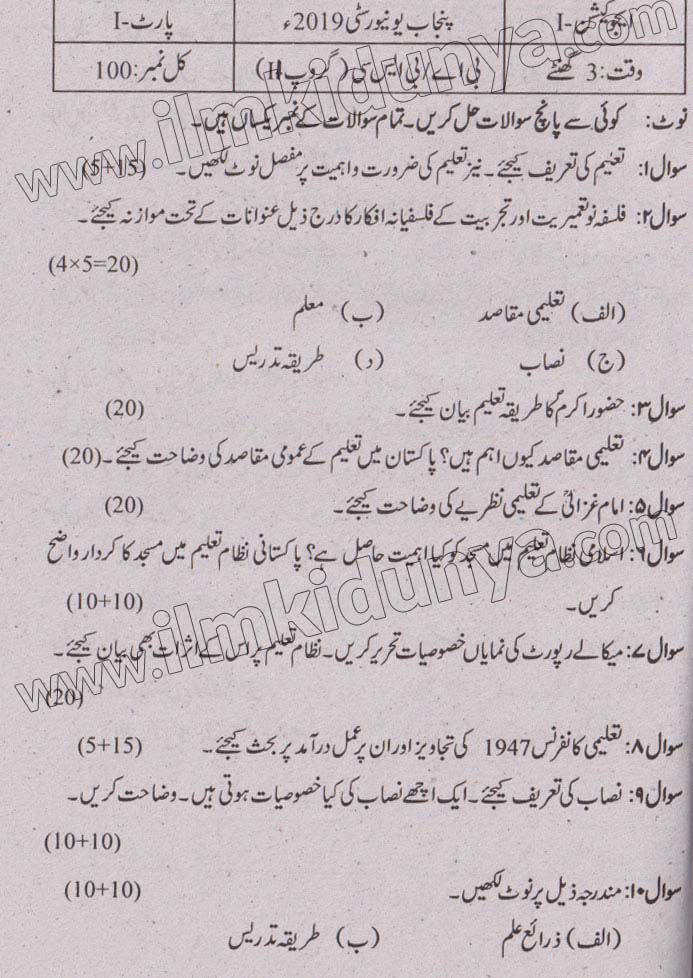 ایجوکیشن-I پنجاب یونیورسٹی 2019ء پارٹ-I
وقت: 3 گھنٹے بی اے/بی ایس سی (گروپ II) کل نمبر: 100
نوٹ: کوئی سے پانچ سوالات حل کریں۔ تمام سوالات کے نمبر یکساں ہیں۔
سوال۱: تعلیم کی تعریف کیجئے۔ نیز تعلیم کی ضرورت و اہمیت پر مفصل نوٹ لکھیں۔ (5+15)
سوال۲: فلسفہ نو تعمیریت اور تجربیت کے فلسفیانہ افکار کا درج ذیل عنوانات کے تحت موازنہ کیجئے۔
(4×5=20)
(الف) تعلیمی مقاصد (ب) معلم
(ج) نصاب (د) طریقہ تدریس
سوال۳: حضور اکرمؐ کا طریقہ تعلیم بیان کیجئے۔ (20)
سوال۴: تعلیمی مقاصد کیوں اہم ہیں؟ پاکستان میں تعلیم کے عمومی مقاصد کی وضاحت کیجئے۔ (20)
سوال۵: امام غزالیؒ کے تعلیمی نظریے کی وضاحت کیجئے۔ (20)
سوال۶: اسلامی نظام تعلیم میں مسجد کو کیا اہمیت حاصل ہے؟ پاکستانی نظام تعلیم میں مسجد کا کردار واضح
کریں۔ (10+10)
سوال۷: میکالے رپورٹ کی نمایاں خصوصیات تحریر کریں۔ نظام تعلیم پر اس کے اثرات بھی بیان کیجئے۔
(20)
سوال۸: تعلیمی کانفرنس 1947 کی تجاویز اور ان پر عمل درآمد پر بحث کیجئے۔ (5+15)
سوال۹: نصاب کی تعریف کیجئے۔ ایک اچھے نصاب کی کیا خصوصیات ہوتی ہیں۔ وضاحت کریں۔
(10+10)
سوال۱۰: مندرجہ ذیل پر نوٹ لکھیں۔ (10+10)
(الف) ذرائع علم (ب) طریقہ تدریس
www.ilmkidunya.com
www.ilmkidunya.com